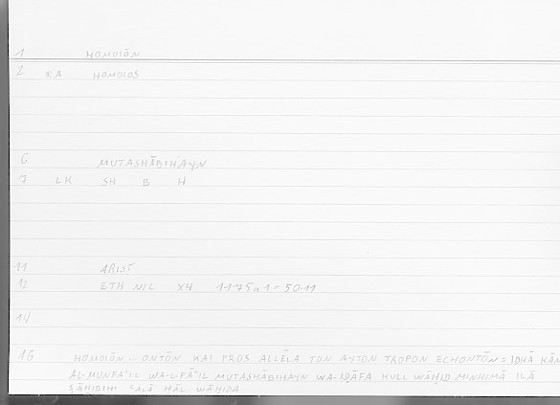 1 HOMOIŌN
2 HOMOIOS
6 MUTASHĀBIHAYN
7 LK SH B H
11 ARIST
12 ETH NIC X4 1175a1-50.11
14
16 HOMOIŌN - ONTŌN KAI PROS ALLĒLA TON AYTON TROPON ECHONTŌN = IDHĀ KĀN
AL-MUNFAʿIL WA-L-FĀʿIL MUTASHĀBIHAYN WA-IḌĀFA KULL WĀḤID MINHIMĀ ILĀ
ṢĀḤIBIHI ʿALĀ ḤĀL WĀḤIDA